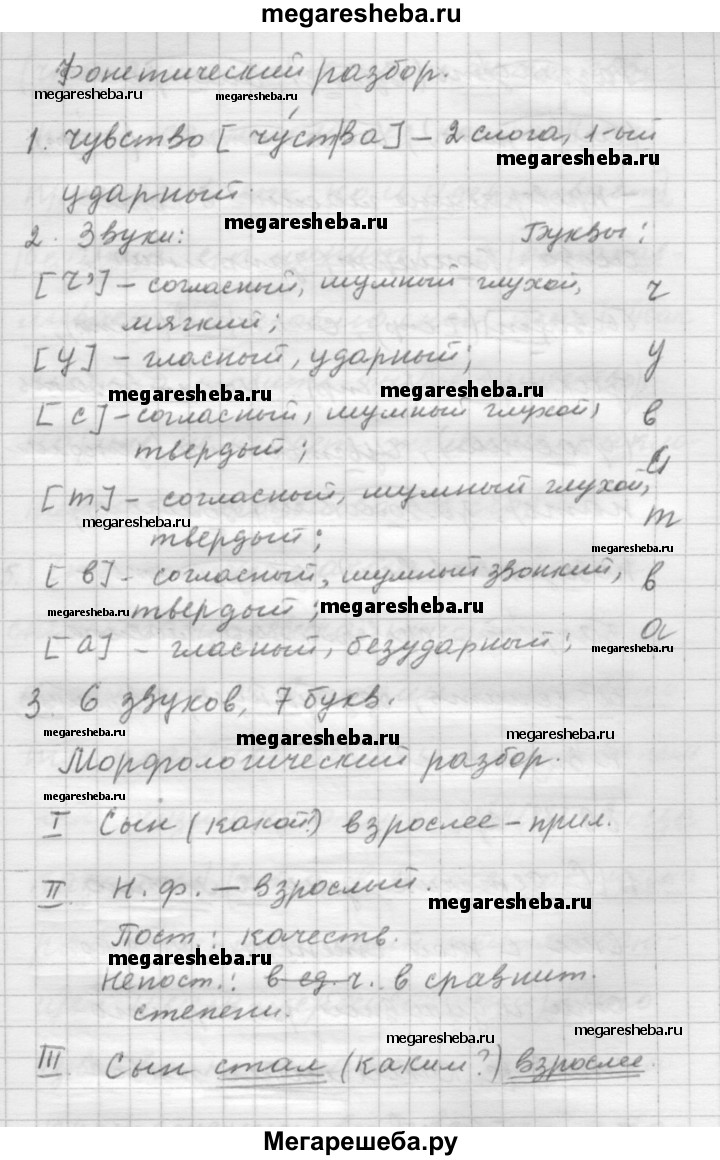 megaresheba.ru
Фонетический разбор.
megaresheba.ru megaresheba.ru
1. чувство [чу́ст|ва] – 2 слога, 1-ый
megaresheba.ru
ударный.
megaresheba.ru
2. Звуки: Буквы:
[ч'] – согласный, шумный глухой, ч
мягкий;
[у] – гласный, ударный; у
megaresheba.ru megaresheba.ru
[с] – согласный, шумный глухой, в
твердый; с
[т] – согласный, шумный глухой, т
megaresheba.ru
твердый;
megaresheba.ru
[в] – согласный, шумный звонкий, в
megaresheba.ru твердый; megaresheba.ru
[а] – гласный, безударный; а
megaresheba.ru
3. 6 звуков, 7 букв.
megaresheba.ru megaresheba.ru
Морфологический разбор.
megaresheba.ru
I Сын (какой?) взрослее – прил.
II Н.ф. – взрослый.
megaresheba.ru
Пост.: качеств.
megaresheba.ru
Непост.: в ед.ч. в сравнит.
степени.
megaresheba.ru megaresheba.ru
III Сын стал (каким?) взрослее.
Мегарешеба.ру